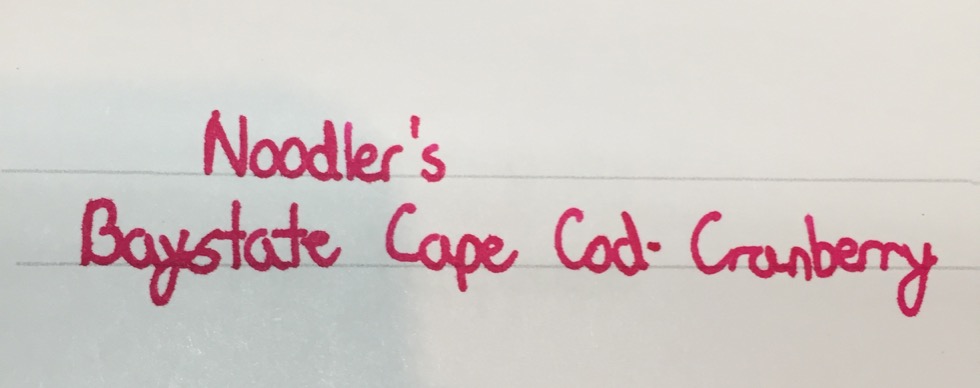 Noodler's
Baystate Cape Cod- Cranberry